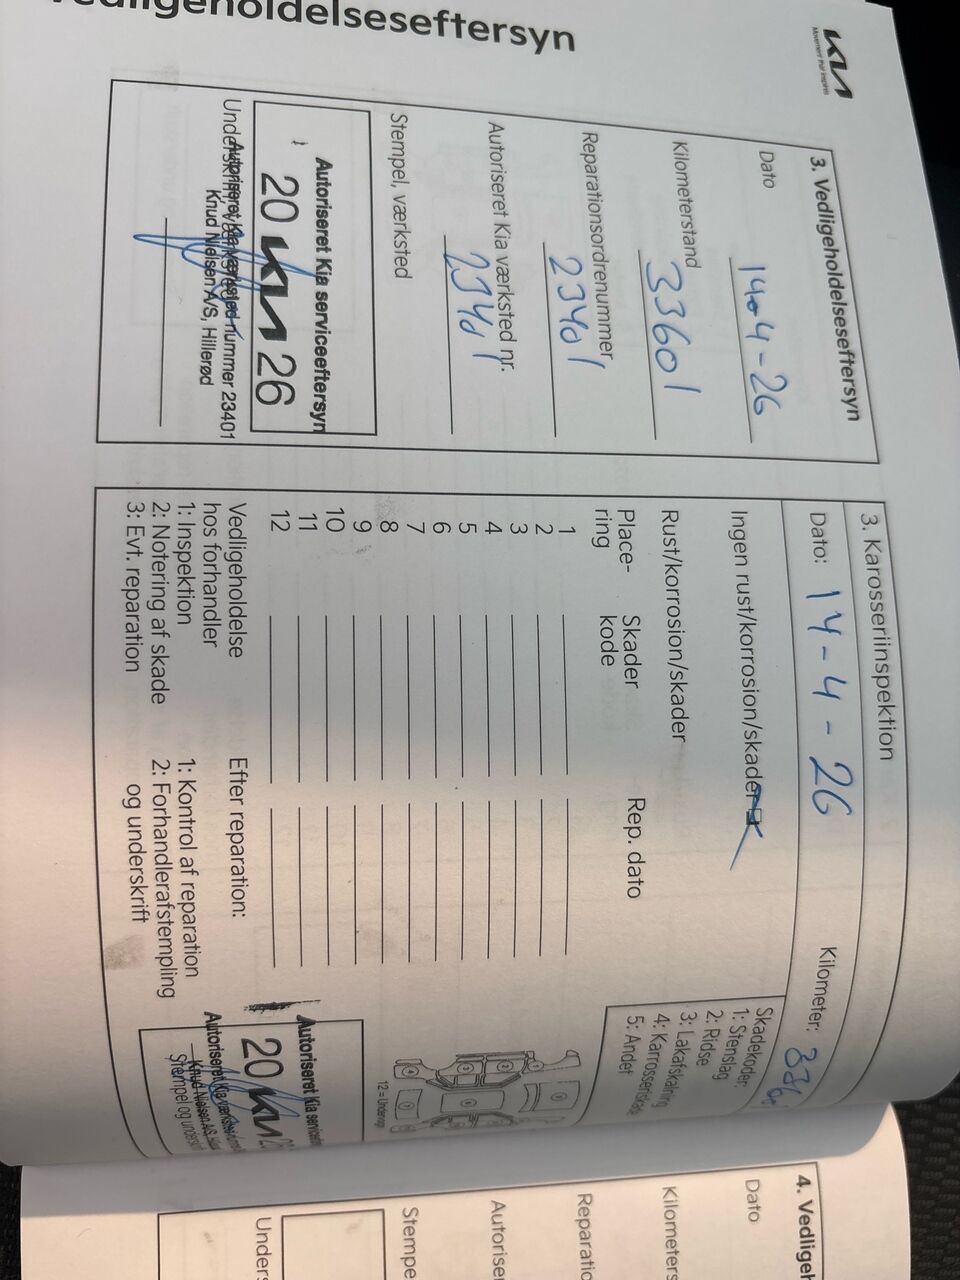 Vedligeholdelseseftersyn
KIA
Movement that inspires
3. Vedligeholdelseseftersyn
Dato 14-4-26
Kilometerstand 33601
Reparationsordrenummer 23401
Autoriseret Kia værksted nr. 23401
Stempel, værksted
Autoriseret Kia serviceeftersyn
20 KIA 26
Underskrift, værksted
Autoriseret Kia værksted nummer 23401
Knud Nielsen A/S, Hillerød
3. Karosseriinspektion
Dato: 14-4-26 Kilometer: 3360
Ingen rust/korrosion/skader
Rust/korrosion/skader
Skadekoder
1: Stenslag
2: Ridse
3: Lakafskalning
4: Karrosseriskade
5: Andet
Place-
ring
Skader
kode
Rep. dato
1
2
3
4
5
6
7
8
9
10
11
12
12 = Undervogn
Vedligeholdelse
hos forhandler
1: Inspektion
2: Notering af skade
3: Evt. reparation
Efter reparation:
1: Kontrol af reparation
2: Forhandlerafstempling
og underskrift
Autoriseret Kia serviceeftersyn
20 KIA 2
Autoriseret Kia værksted
Knud Nielsen A/S
Stempel og underskrift
4. Vedligeh
Dato
Kilometers
Reparatio
Autoriser
Stempe
Unders